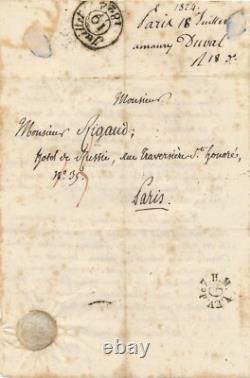 1824.
Paris 18 Juillet
amaury Duval
Monsieur
Monsieur Rigaud;
hotel de Russie, rue traversière St. honoré,
n° 35
Paris.